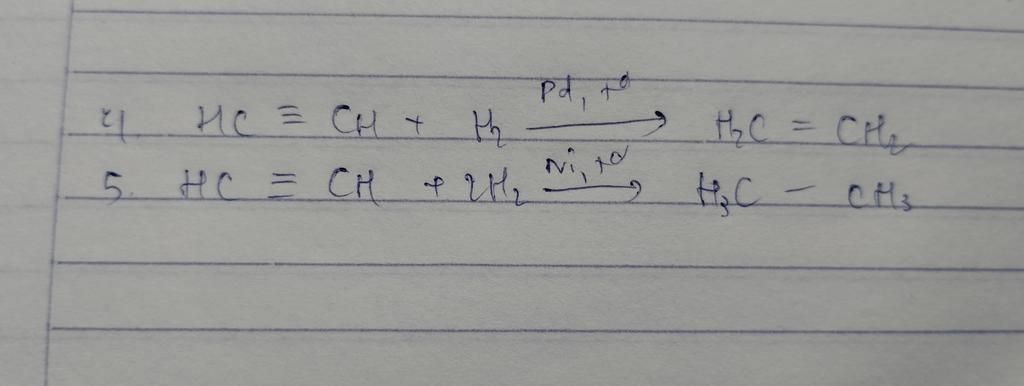 4. HC ≡ CH + H₂ —Pd, t°→ H₂C = CH₂
5. HC ≡ CH + 2H₂ —Ni, t°→ H₃C – CH₃